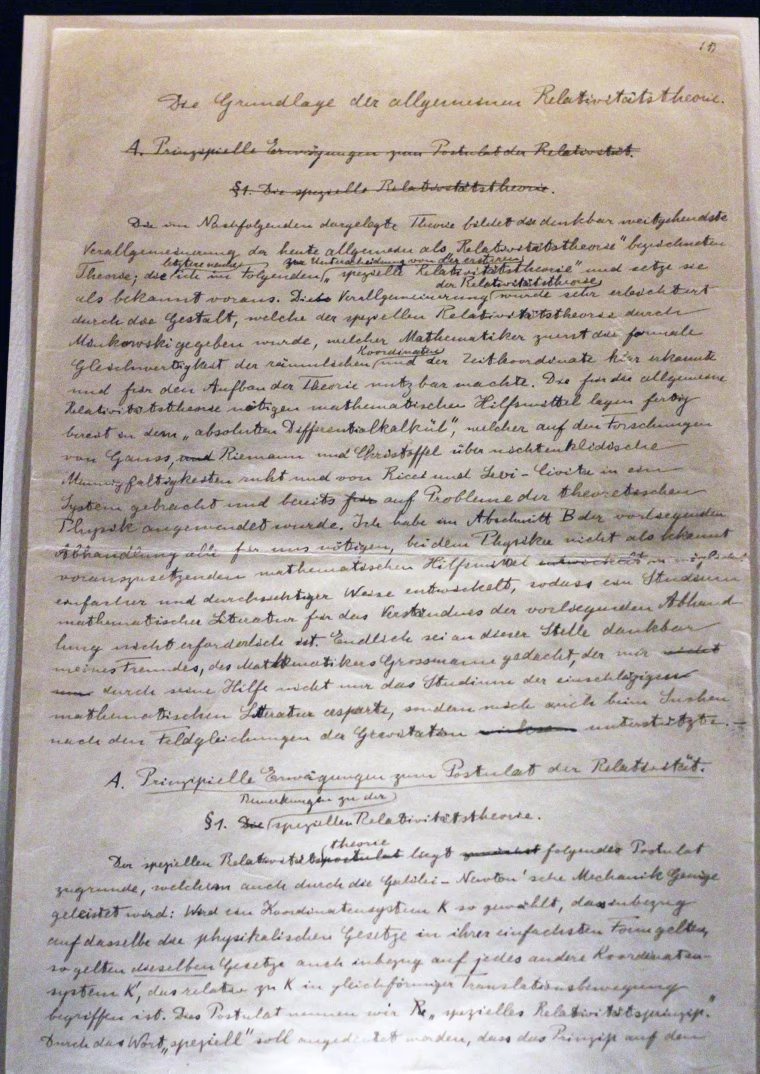 Die Grundlage der allgemeinen Relativitätstheorie.
A. Prinzipielle Erwägungen zum Postulat der Relativität.
§1. Die spezielle Relativitätstheorie.
Die im Nachfolgenden dargelegte Theorie bildet die denkbar weitgehendste
Verallgemeinerung der heute allgemein als „Relativitätstheorie" bezeichneten
letztere nenne zur Unterscheidung von der ersteren
Theorie; die ich im Folgenden „spezielle Relativitätstheorie" und setze sie
der Relativitätstheorie
als bekannt voraus. Die Verallgemeinerung wurde sehr erleichtert
durch die Gestalt, welche der speziellen Relativitätstheorie durch
Minkowski gegeben wurde, welcher Mathematiker zuerst die formale
Koordinaten
Gleichwertigkeit der räumlichen und der Zeitkoordinate klar erkannte
und für den Aufbau der Theorie nutzbar machte. Die für die allgemeine
Relativitätstheorie nötigen mathematischen Hilfsmittel lagen fertig
bereit in dem „absoluten Differentialkalkül", welcher auf den Forschungen
von Gauss, und Riemann und Christoffel über nichteuklidische
Mannigfaltigkeiten ruht und von Ricci und Levi-Civita in ein
System gebracht und bereits für auf Probleme der theoretischen
Physik angewendet wurde. Ich habe im Abschnitt B der vorliegenden
Abhandlung alle für uns nötigen, bei dem Physiker nicht als bekannt
vorauszusetzenden mathematischen Hilfsmittel entwickelt in möglichst
einfacher und durchsichtiger Weise entwickelt, sodass ein Studium
mathematischer Literatur für das Verständnis der vorliegenden Abhand-
lung nicht erforderlich ist. Endlich sei an dieser Stelle dankbar
meines Freundes, des Mathematikers Grossmann gedacht, der mir nicht
durch seine Hilfe nicht nur das Studium der einschlägigen
mathematischen Literatur ersparte, sondern mich auch beim Suchen
nach den Feldgleichungen der Gravitation unterstützte.
A. Prinzipielle Erwägungen zum Postulat der Relativität.
Bemerkungen zu der
§1. Die speziellen Relativitätstheorie.
theorie
Der speziellen Relativitätspostulat liegt zunächst folgendes Postulat
zugrunde, welchem auch durch die Galilei-Newton'sche Mechanik Genüge
geleistet wird: Wird ein Koordinatensystem K so gewählt, dass inbezug
auf dasselbe die physikalischen Gesetze in ihrer einfachsten Form gelten,
so gelten dieselben Gesetze auch inbezug auf jedes andere Koordinaten-
system K', das relativ zu K in gleichförmiger Translationsbewegung
begriffen ist. Das Postulat nennen wir „spezielles Relativitätsprinzip."
Durch das Wort „speziell" soll angedeutet werden, dass das Prinzip auf den